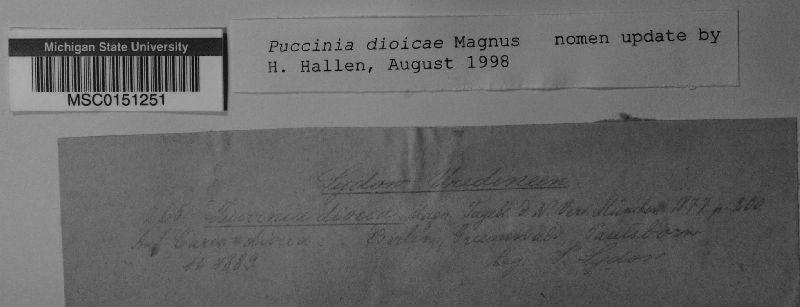 Michigan State University
MSC0151251
Puccinia dioicae Magnus nomen update by
H. Hallen, August 1998
Sydow Uredineen.
265. Puccinia dioica Magn. Tagebl. d. N. Vers. München 1877 p. 200
Auf Carex dioica. Berlin, Grunewald, Paulsborn
1889 leg. P. Sydow